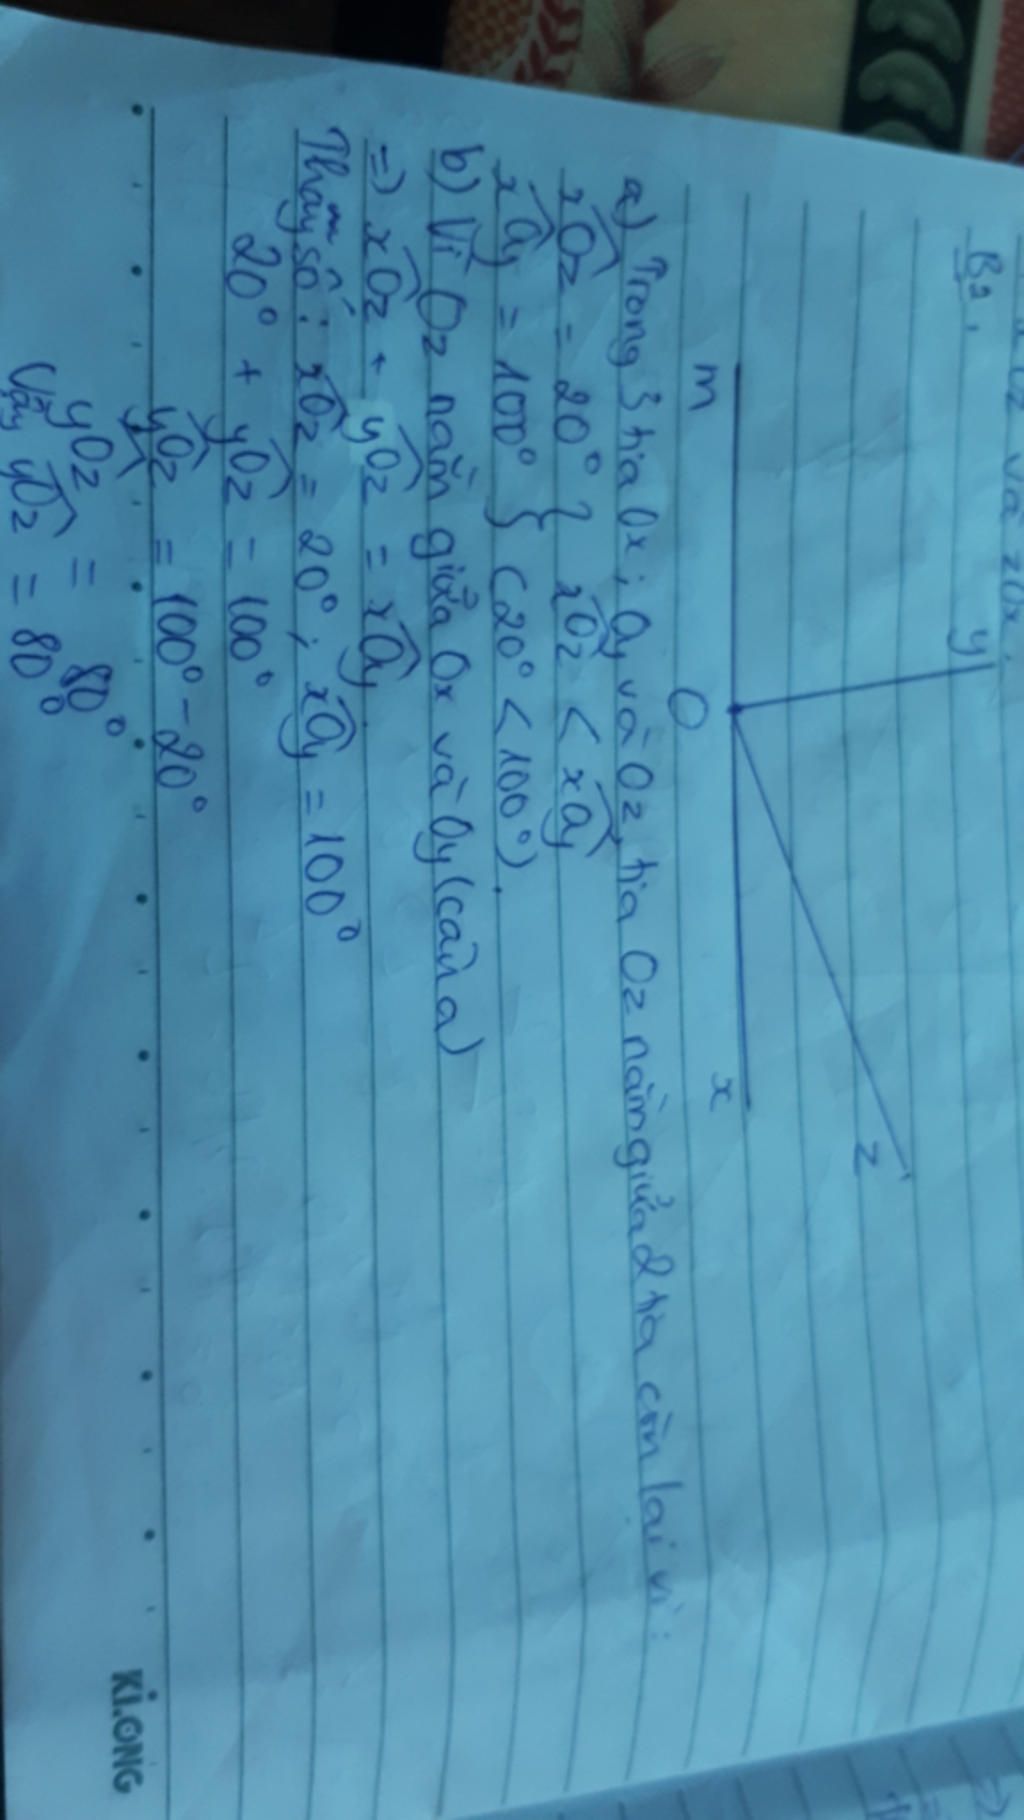 B2,
y
z
m
O
x
a) Trong 3 tia Ox; Oy và Oz, tia Oz nằm giữa 2 tia còn lại vì:
xOz = 20° } xOz < xOy
xOy = 100° } (20° < 100°).
b) Vì Oz nằm giữa Ox và Oy (câu a)
=> xOz + yOz = xOy
Thay số: xOz = 20°; xOy = 100°
20° + yOz = 100°
yOz = 100° - 20°
yOz = 80°
Vậy yOz = 80°
Ki.ONG